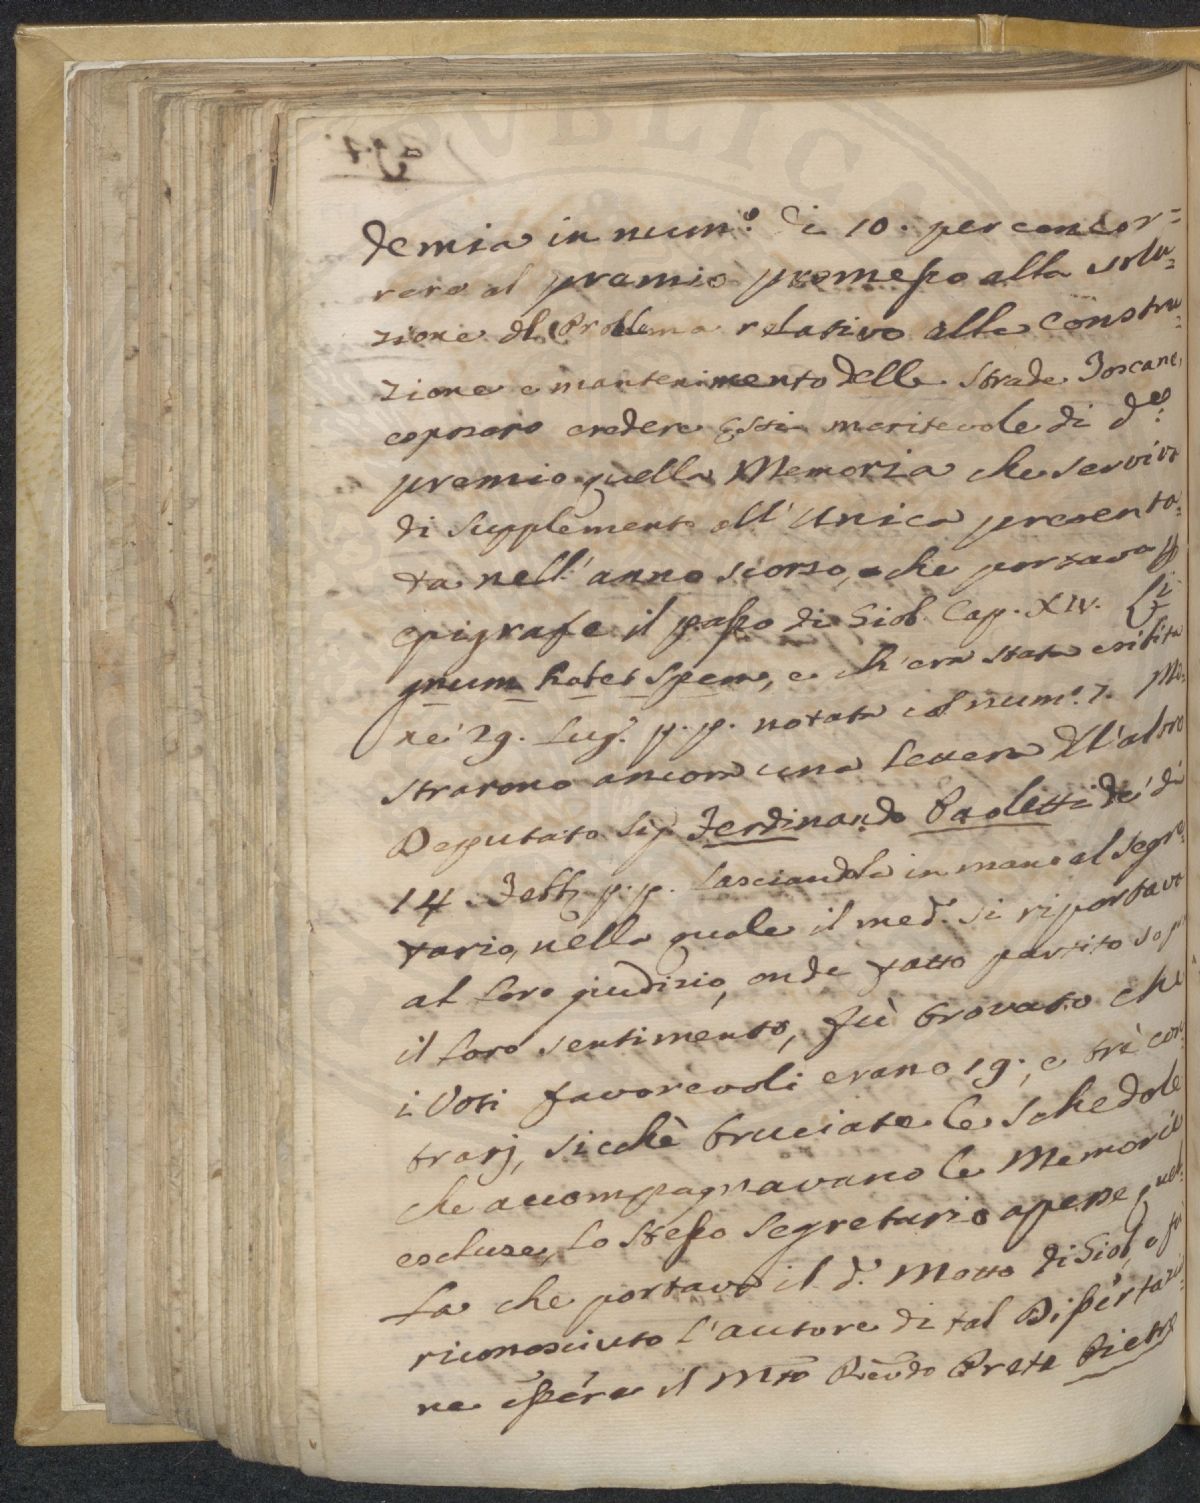 demia in num.o di 10. per concor=
rere al premio promesso alla solu=
zione del Problema relativo alla Constru=
zione e mantenimento delle Strade Toscane,
esposero credere Essi meritevole di d.o
premio quella Memoria che serviva
di Supplemento all'Unica presenta=
ta nell'anno scorso, e che portava p
epigrafe il passo di Giob. Cap. XIV. Li=
gnum habet Spem, e ch'era stata esibita
ne' 29. Lug.o p.p. notata col num.o 7. Mo=
strarono ancora una Lettera dell'altro
Deputato Sig. Ferdinando Paoletti de' dì
14. Febb. p.p. lasciandola in mano al Segre=
tario, nella quale il med.o si riportava
al loro giudizio, onde fatto partito sop.a
il loro sentimento, fù trovato che
i Voti favorevoli erano 19., e trè con=
trarj, sicchè bruciate le Schedole
che accompagnavano le Memorie
escluse, lo stesso Segretario aperse quel=
la che portava il d.o Motto di Giob, e fu
riconosciuto l'autore di tal Dissertazio=
ne essere il Mto Revdo Prete Pietro
PVBLICA